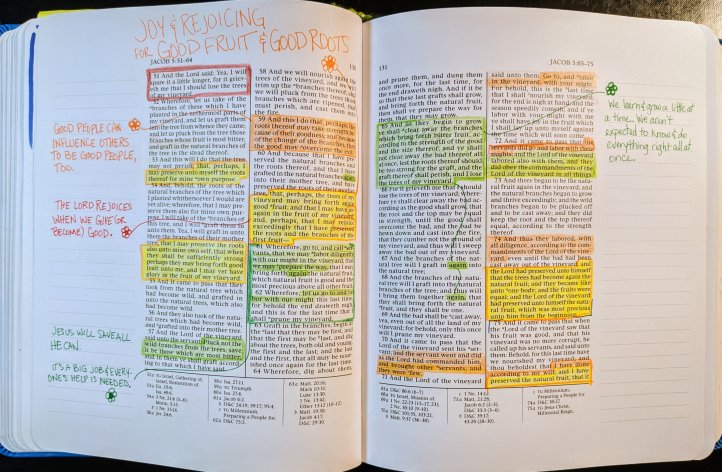 JOY & REJOICING
FOR GOOD FRUIT & GOOD ROOTS
JACOB 5:51–64
130
GOOD PEOPLE CAN
INFLUENCE OTHERS
TO BE GOOD PEOPLE,
TOO.
THE LORD REJOICES
WHEN WE GIVE (OR
BECOME) GOOD.
JESUS WILL SAVE ALL
HE CAN.
IT'S A BIG JOB & EVERY-
ONE'S HELP IS NEEDED.
51 And the Lord said: Yea, I will
spare it a little longer, for it griev-
eth me that I should lose the trees
of my vineyard.
52 Wherefore, let us take of the
branches of these which I have
planted in the nethermost parts of
my vineyard, and let us graft them
into the tree from whence they came;
and let us pluck from the tree those
branches whose fruit is most bitter,
and graft in the natural branches
of the tree in the stead thereof.
53 And this will I do that the tree
may not perish, that, perhaps, I
may preserve unto myself the roots
thereof for mine own purpose.
54 And, behold, the roots of the
natural branches of the tree which
I planted whithersoever I would are
yet alive; wherefore, that I may pre-
serve them also for mine own pur-
pose, I will take of the branches of
this tree, and I will graft them in
unto them. Yea, I will graft in unto
them the branches of their mother
tree, that I may preserve the roots
also unto mine own self, that when
they shall be sufficiently strong
perhaps they may bring forth good
fruit unto me, and I may yet have
glory in the fruit of my vineyard.
55 And it came to pass that they
took from the natural tree which
had become wild, and grafted in
unto the natural trees, which also
had become wild.
56 And they also took of the natu-
ral trees which had become wild,
and grafted into their mother tree.
57 And the Lord of the vineyard
said unto the servant: Pluck not the
wild branches from the trees, save
it be those which are most bitter;
and in them ye shall graft accord-
ing to that which I have said.
58 And we will nourish again the
trees of the vineyard, and we will
trim up the branches thereof; and
we will pluck from the trees those
branches which are ripened, that
must perish, and cast them into
the fire.
59 And this I do that, perhaps, the
roots thereof may take strength be-
cause of their goodness; and because
of the change of the branches, that
the good may overcome the evil.
60 And because that I have pre-
served the natural branches and
the roots thereof, and that I have
grafted in the natural branches again
into their mother tree, and have
preserved the roots of their mother
tree, that, perhaps, the trees of my
vineyard may bring forth again
good fruit; and that I may have joy
again in the fruit of my vineyard,
and, perhaps, that I may rejoice
exceedingly that I have preserved
the roots and the branches of the
first fruit—
61 Wherefore, go to, and call ser-
vants, that we may labor diligently
with our might in the vineyard, that
we may prepare the way, that I may
bring forth again the natural fruit,
which natural fruit is good and the
most precious above all other fruit.
62 Wherefore, let us go to and la-
bor with our might this last time,
for behold the end draweth nigh,
and this is for the last time that I
shall prune my vineyard.
63 Graft in the branches; begin at
the last that they may be first, and
that the first may be last, and dig
about the trees, both old and young,
the first and the last; and the last
and the first, that all may be nour-
ished once again for the last time.
64 Wherefore, dig about them,
131
JACOB 5:65–75
and prune them, and dung them
once more, for the last time, for
the end draweth nigh. And if it be
so that these last grafts shall grow,
and bring forth the natural fruit,
then shall ye prepare the way for
them, that they may grow.
65 And as they begin to grow
ye shall clear away the branches
which bring forth bitter fruit, ac-
cording to the strength of the good
and the size thereof; and ye shall
not clear away the bad thereof all
at once, lest the roots thereof should
be too strong for the graft, and the
graft thereof shall perish, and I lose
the trees of my vineyard.
66 For it grieveth me that I should
lose the trees of my vineyard; where-
fore ye shall clear away the bad ac-
cording as the good shall grow, that
the root and the top may be equal
in strength, until the good shall
overcome the bad, and the bad be
hewn down and cast into the fire,
that they cumber not the ground of
my vineyard; and thus will I sweep
away the bad out of my vineyard.
67 And the branches of the natu-
ral tree will I graft in again into
the natural tree;
68 And the branches of the natu-
ral tree will I graft into the natural
branches of the tree; and thus will
I bring them together again, that
they shall bring forth the natural
fruit, and they shall be one.
69 And the bad shall be cast away,
yea, even out of all the land of my
vineyard; for behold, only this once
will I prune my vineyard.
70 And it came to pass that the
Lord of the vineyard sent his ser-
vant; and the servant went and did
as the Lord had commanded him,
and brought other servants; and
they were few.
71 And the Lord of the vineyard
said unto them: Go to, and labor
in the vineyard, with your might.
For behold, this is the last time
that I shall nourish my vineyard;
for the end is nigh at hand, and the
season speedily cometh; and if ye
labor with your might with me
ye shall have joy in the fruit which
I shall lay up unto myself against
the time which will soon come.
72 And it came to pass that the
servants did go and labor with their
mights; and the Lord of the vineyard
labored also with them; and they
did obey the commandments of the
Lord of the vineyard in all things.
73 And there began to be the natu-
ral fruit again in the vineyard; and
the natural branches began to grow
and thrive exceedingly; and the wild
branches began to be plucked off
and to be cast away; and they did
keep the root and the top thereof
equal, according to the strength
thereof.
74 And thus they labored, with
all diligence, according to the com-
mandments of the Lord of the vine-
yard, even until the bad had been
cast away out of the vineyard, and
the Lord had preserved unto himself
that the trees had become again the
natural fruit; and they became like
unto one body; and the fruits were
equal; and the Lord of the vineyard
had preserved unto himself the natu-
ral fruit, which was most precious
unto him from the beginning.
75 And it came to pass that when
the Lord of the vineyard saw that
his fruit was good, and that his
vineyard was no more corrupt, he
called up his servants, and said unto
them: Behold, for this last time have
we nourished my vineyard; and
thou beholdest that I have done
according to my will; and I have
preserved the natural fruit, that it
We learn & grow a little at
a time. We aren't
expected to know & do
everything right all at
once.